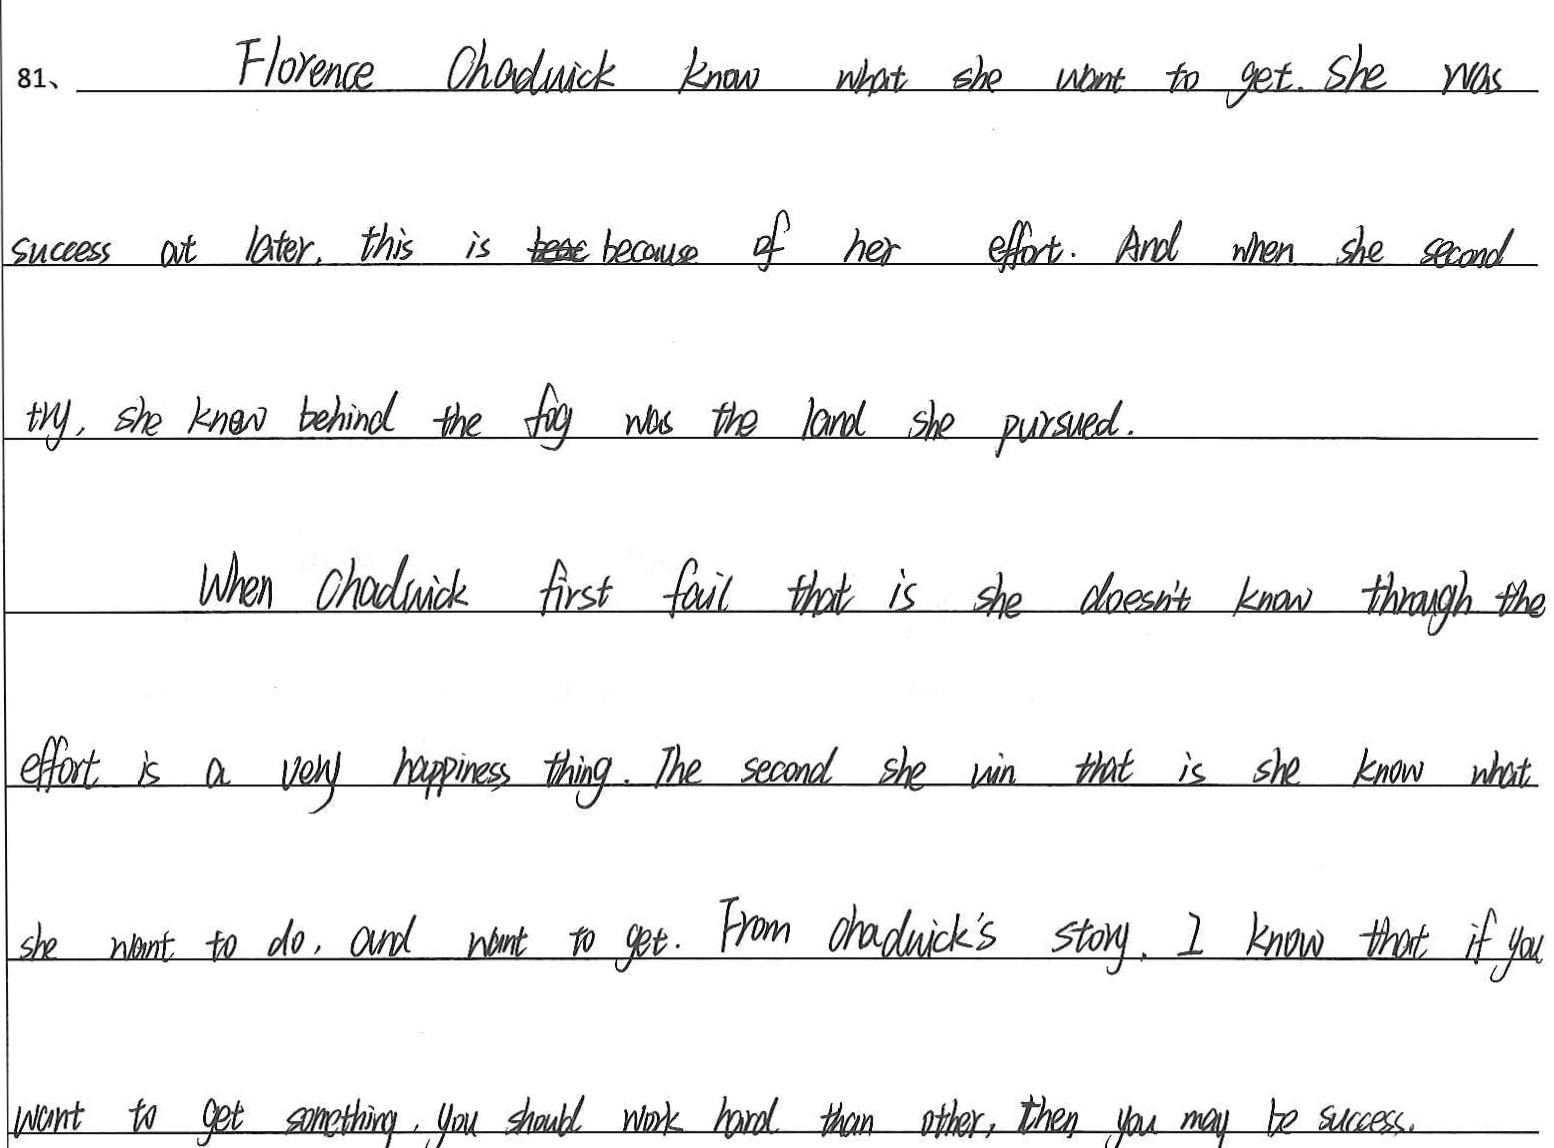 81、 Florence Chadwick know what she want to get. She was
success at later, this is because of her effort. And when she second
try, she know behind the fog was the land she pursued.
When Chadwick first fail that is she doesn't know through the
effort is a very happiness thing. The second she win that is she know what
she want to do, and want to get. From chadwick's story, I know that if you
want to get something, you should work hard than other, then you may be success.